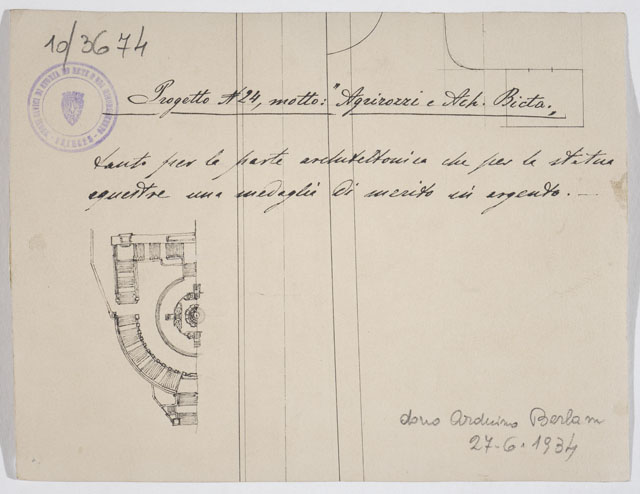 10/3674
Progetto N 24, motto: "Agrirozzi e Ach. Bicta."
tanto per la parte architettonica che per la statua
equestre una medaglia di merito in argento. —
dono Arduino Berlam
27-6-1934